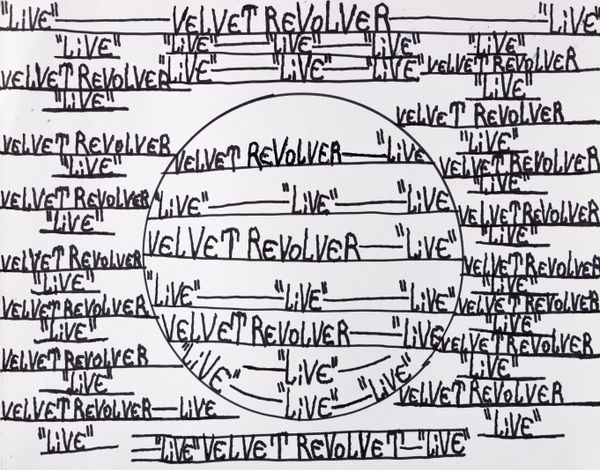 "LiVE" VELVET REVOLVER "LiVE"
"LiVE" "LiVE" "LiVE" "LiVE" "LiVE"
VELVET REVOLVER "LiVE" "LiVE" "LiVE" VELVET REVOLVER
"LiVE" "LiVE"
VELVET REVOLVER
VELVET REVOLVER "LiVE"
VELVET REVOLVER "LiVE" VELVET REVOLVER
"LiVE" "LiVE"
VELVET REVOLVER "LiVE" "LiVE" "LiVE" VELVET REVOLVER
"LiVE" "LiVE"
VELVET REVOLVER "LiVE"
VELVET REVOLVER VELVET REVOLVER
"LiVE" "LiVE"
"LiVE" "LiVE" "LiVE"
VELVET REVOLVER VELVET REVOLVER
"LiVE" VELVET REVOLVER "LiVE" "LiVE"
VELVET REVOLVER
VELVET REVOLVER "LiVE" "LiVE" "LiVE"
"LiVE" "LiVE"
VELVET REVOLVER
VELVET REVOLVER LiVE "LiVE"
"LiVE" "LiVE"
"LiVE" VELVET REVOLVET "LiVE"